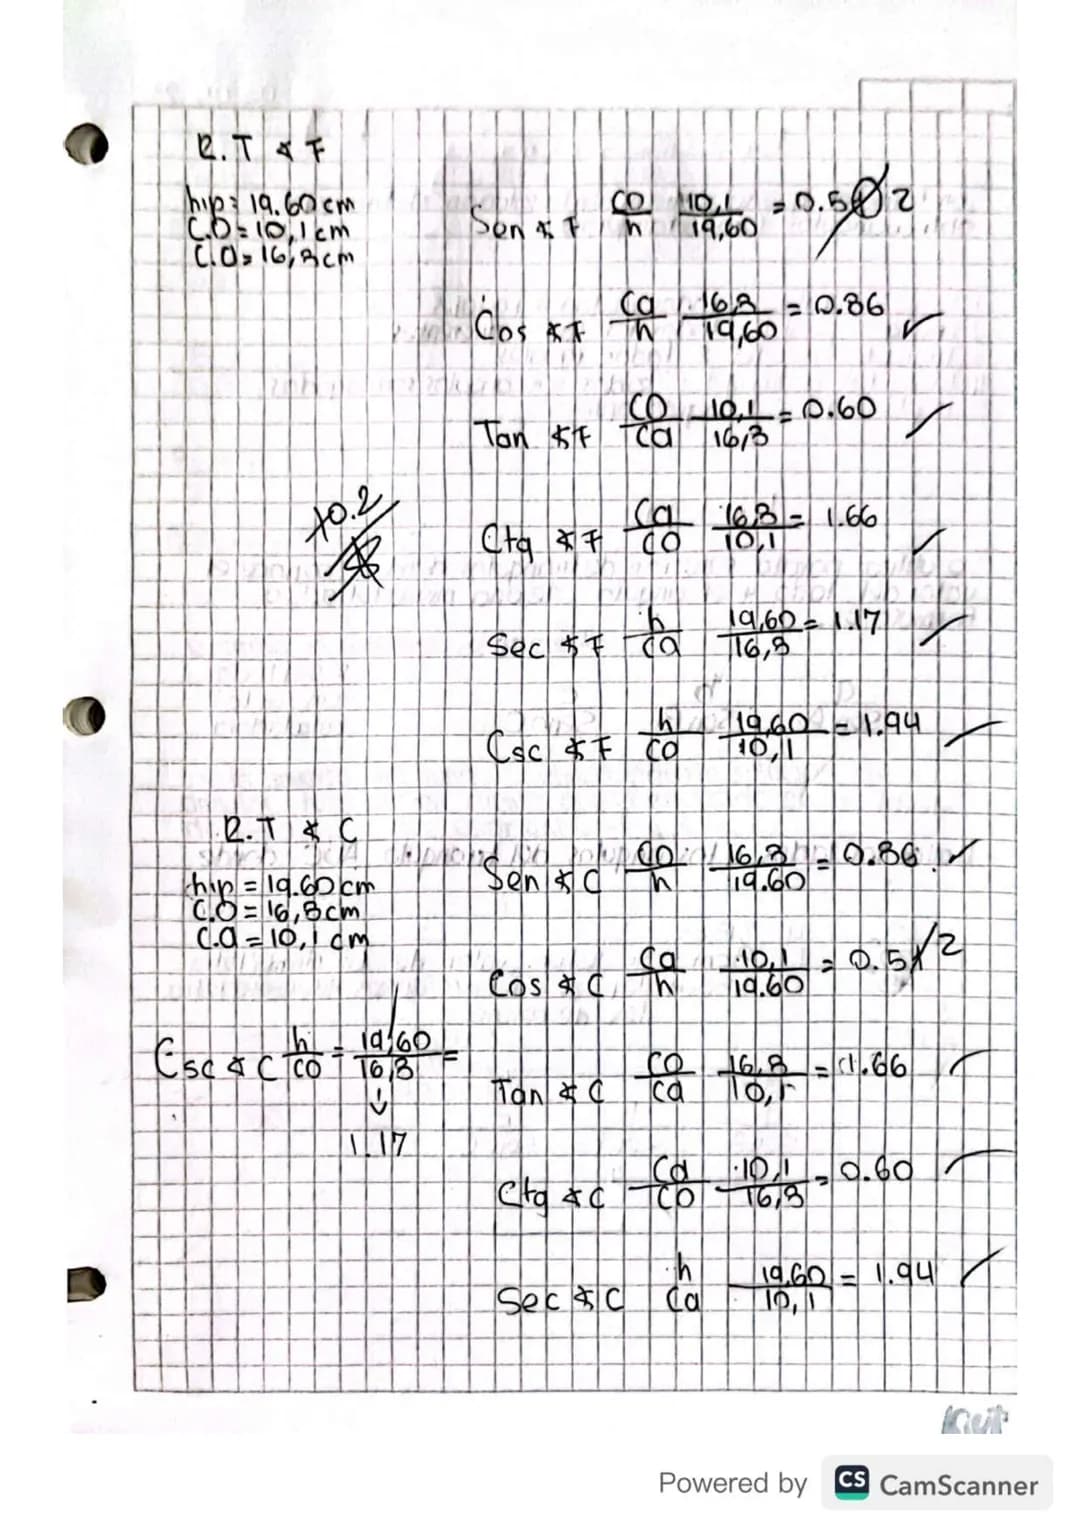 R.T ∡ F
hip: 19.60cm
C.O= 10,1cm
C.A= 16,8cm
Sen ∡ F co/h 10,1/19,60 = 0.502
Cos ∡F ca/h 16,8/19,60 = 0.86
Tan ∡F co/ca 10,1/16,8 = 0.60
+0.2
Ctg ∡F ca/co 16,8/10,1 = 1.66
Sec ∡F h/ca 19,60/16,8 = 1.17
Csc ∡F h/co 19,60/10,1 = 1.94
R.T ∡ C
hip = 19.60cm
C.O = 16,8cm
C.a = 10,1 cm
Sen ∡C co/h 16,8/19.60 = 0.86
Cos ∡C ca/h 10,1/19.60 = 0.5 2
Csc ∡ C h/co = 19,60/16,8 =
1.17
Tan ∡C co/ca 16,8/10,1 = 1.66
Ctg ∡C ca/co 10,1/16,8 = 0.60
Sec ∡C h/ca 19,60/10,1 = 1.94
Powered by CS CamScanner